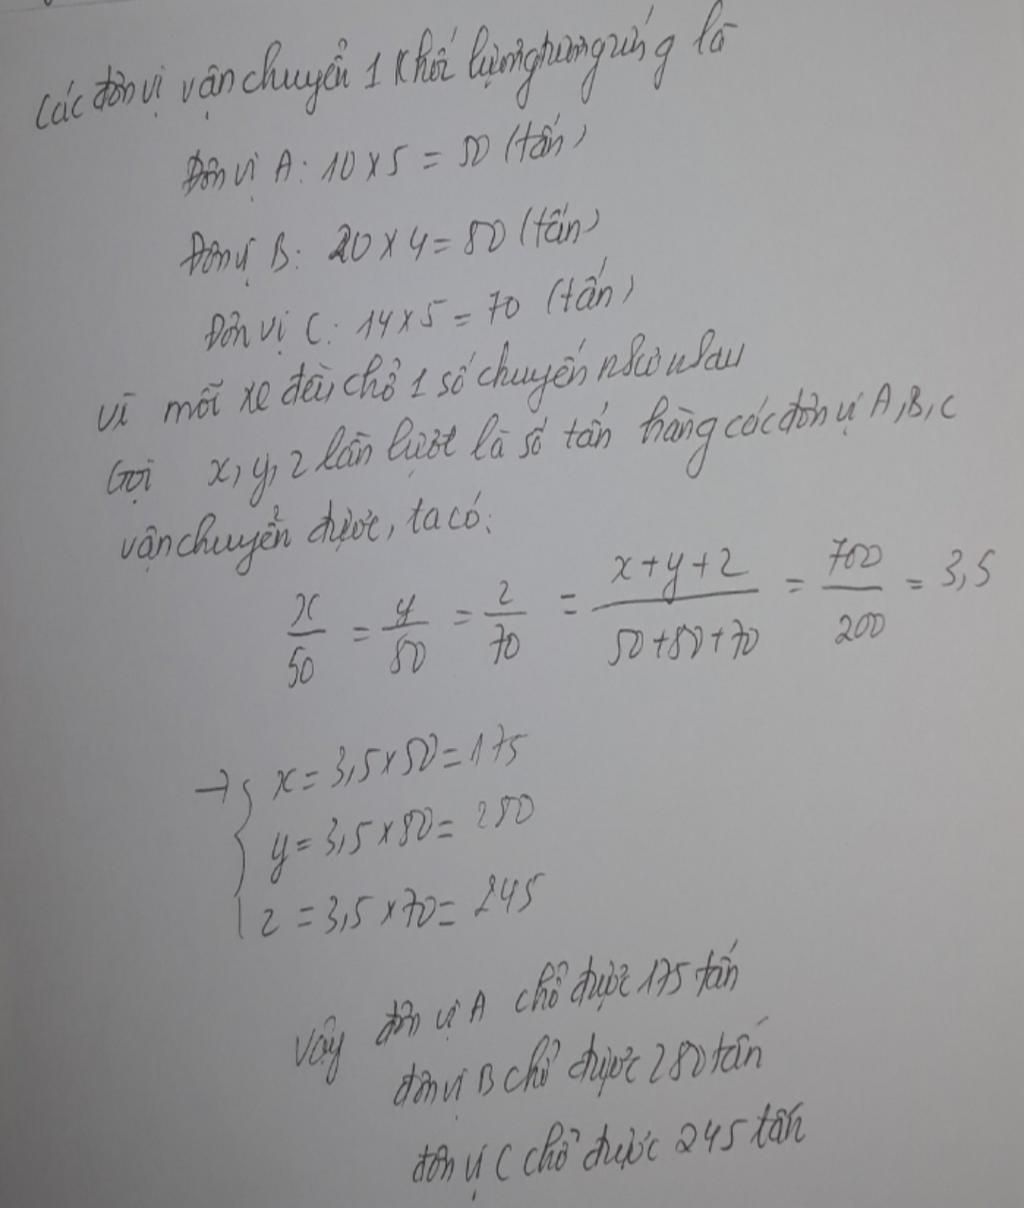 Các đơn vị vận chuyển 1 khối lượng tương ứng là
Đơn vị A: 10 x 5 = 50 (tấn)
Đơn vị B: 20 x 4 = 80 (tấn)
Đơn vị C: 14 x 5 = 70 (tấn)
Vì mỗi xe đều chở 1 số chuyến như nhau
Gọi x, y, z lần lượt là số tấn hàng các đơn vị A, B, C
vận chuyển được, ta có:
x/50 = y/80 = z/70 = x+y+z/50+80+70 = 700/200 = 3,5
→ { x = 3,5 x 50 = 175
y = 3,5 x 80 = 280
z = 3,5 x 70 = 245
Vậy đơn vị A chở được 175 tấn
đơn vị B chở được 280 tấn
đơn vị C chở được 245 tấn